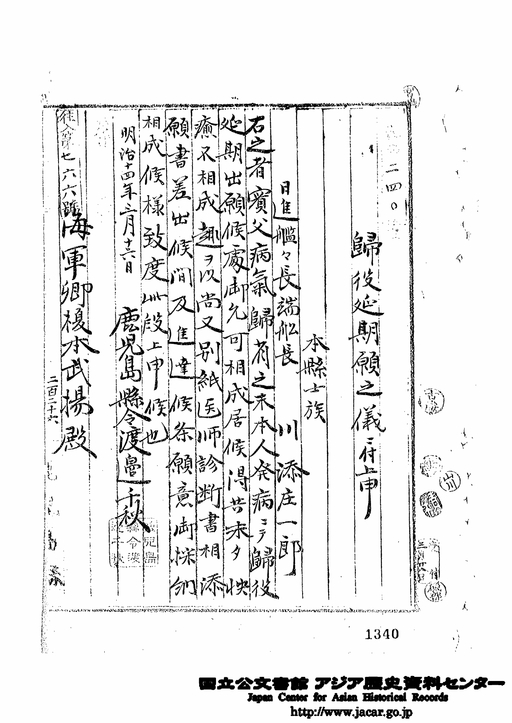 二四〇
歸役延期願之儀ニ付上申
本縣士族
日進艦々長端船長 川添庄一郎
右之者実父病氣歸省之末本人発病ニテ歸役
延期出願候處御允可相成居候得共未タ快
癒不相成趣ヲ以尚又別紙医师診断書相添
願書差出候間及進達候条願意御採納
相成候様致度此段上申候也
明治十四年三月十六日 鹿児島縣令渡邊千秋
海軍卿榎本武揚殿
往入第七六六號
二百二十六
1340
国立公文書館 アジア歴史資料センター
Japan Center for Asian Historical Records
http://www.jacar.go.jp